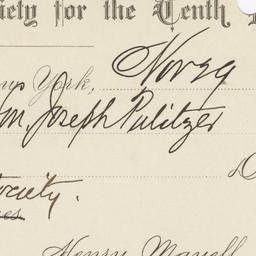 iety for the Tenth
York, Nov 29
on. Joseph Pulitzer
D
ociety.
Henry Mayell